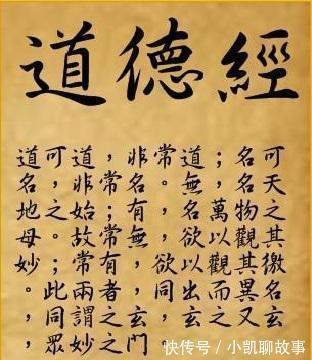 道德經
道可道，非常道；名可
名，非常名。無名，天
地之始；有名，萬物之
母。故常無，欲以觀其
妙；常有，欲以觀其徼
。此兩者，同出而異名
，同謂之玄。玄之又玄
，眾妙之門。
快传号/小凯聊故事